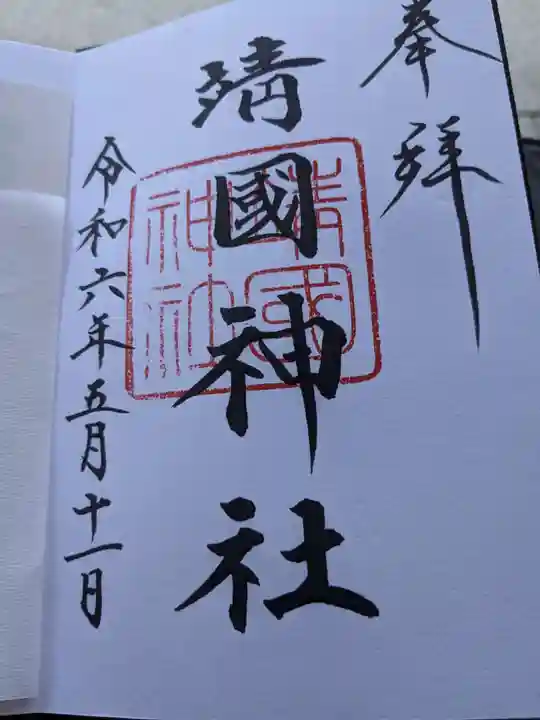 奉拝
靖國神社
靖国神社
令和六年五月十一日